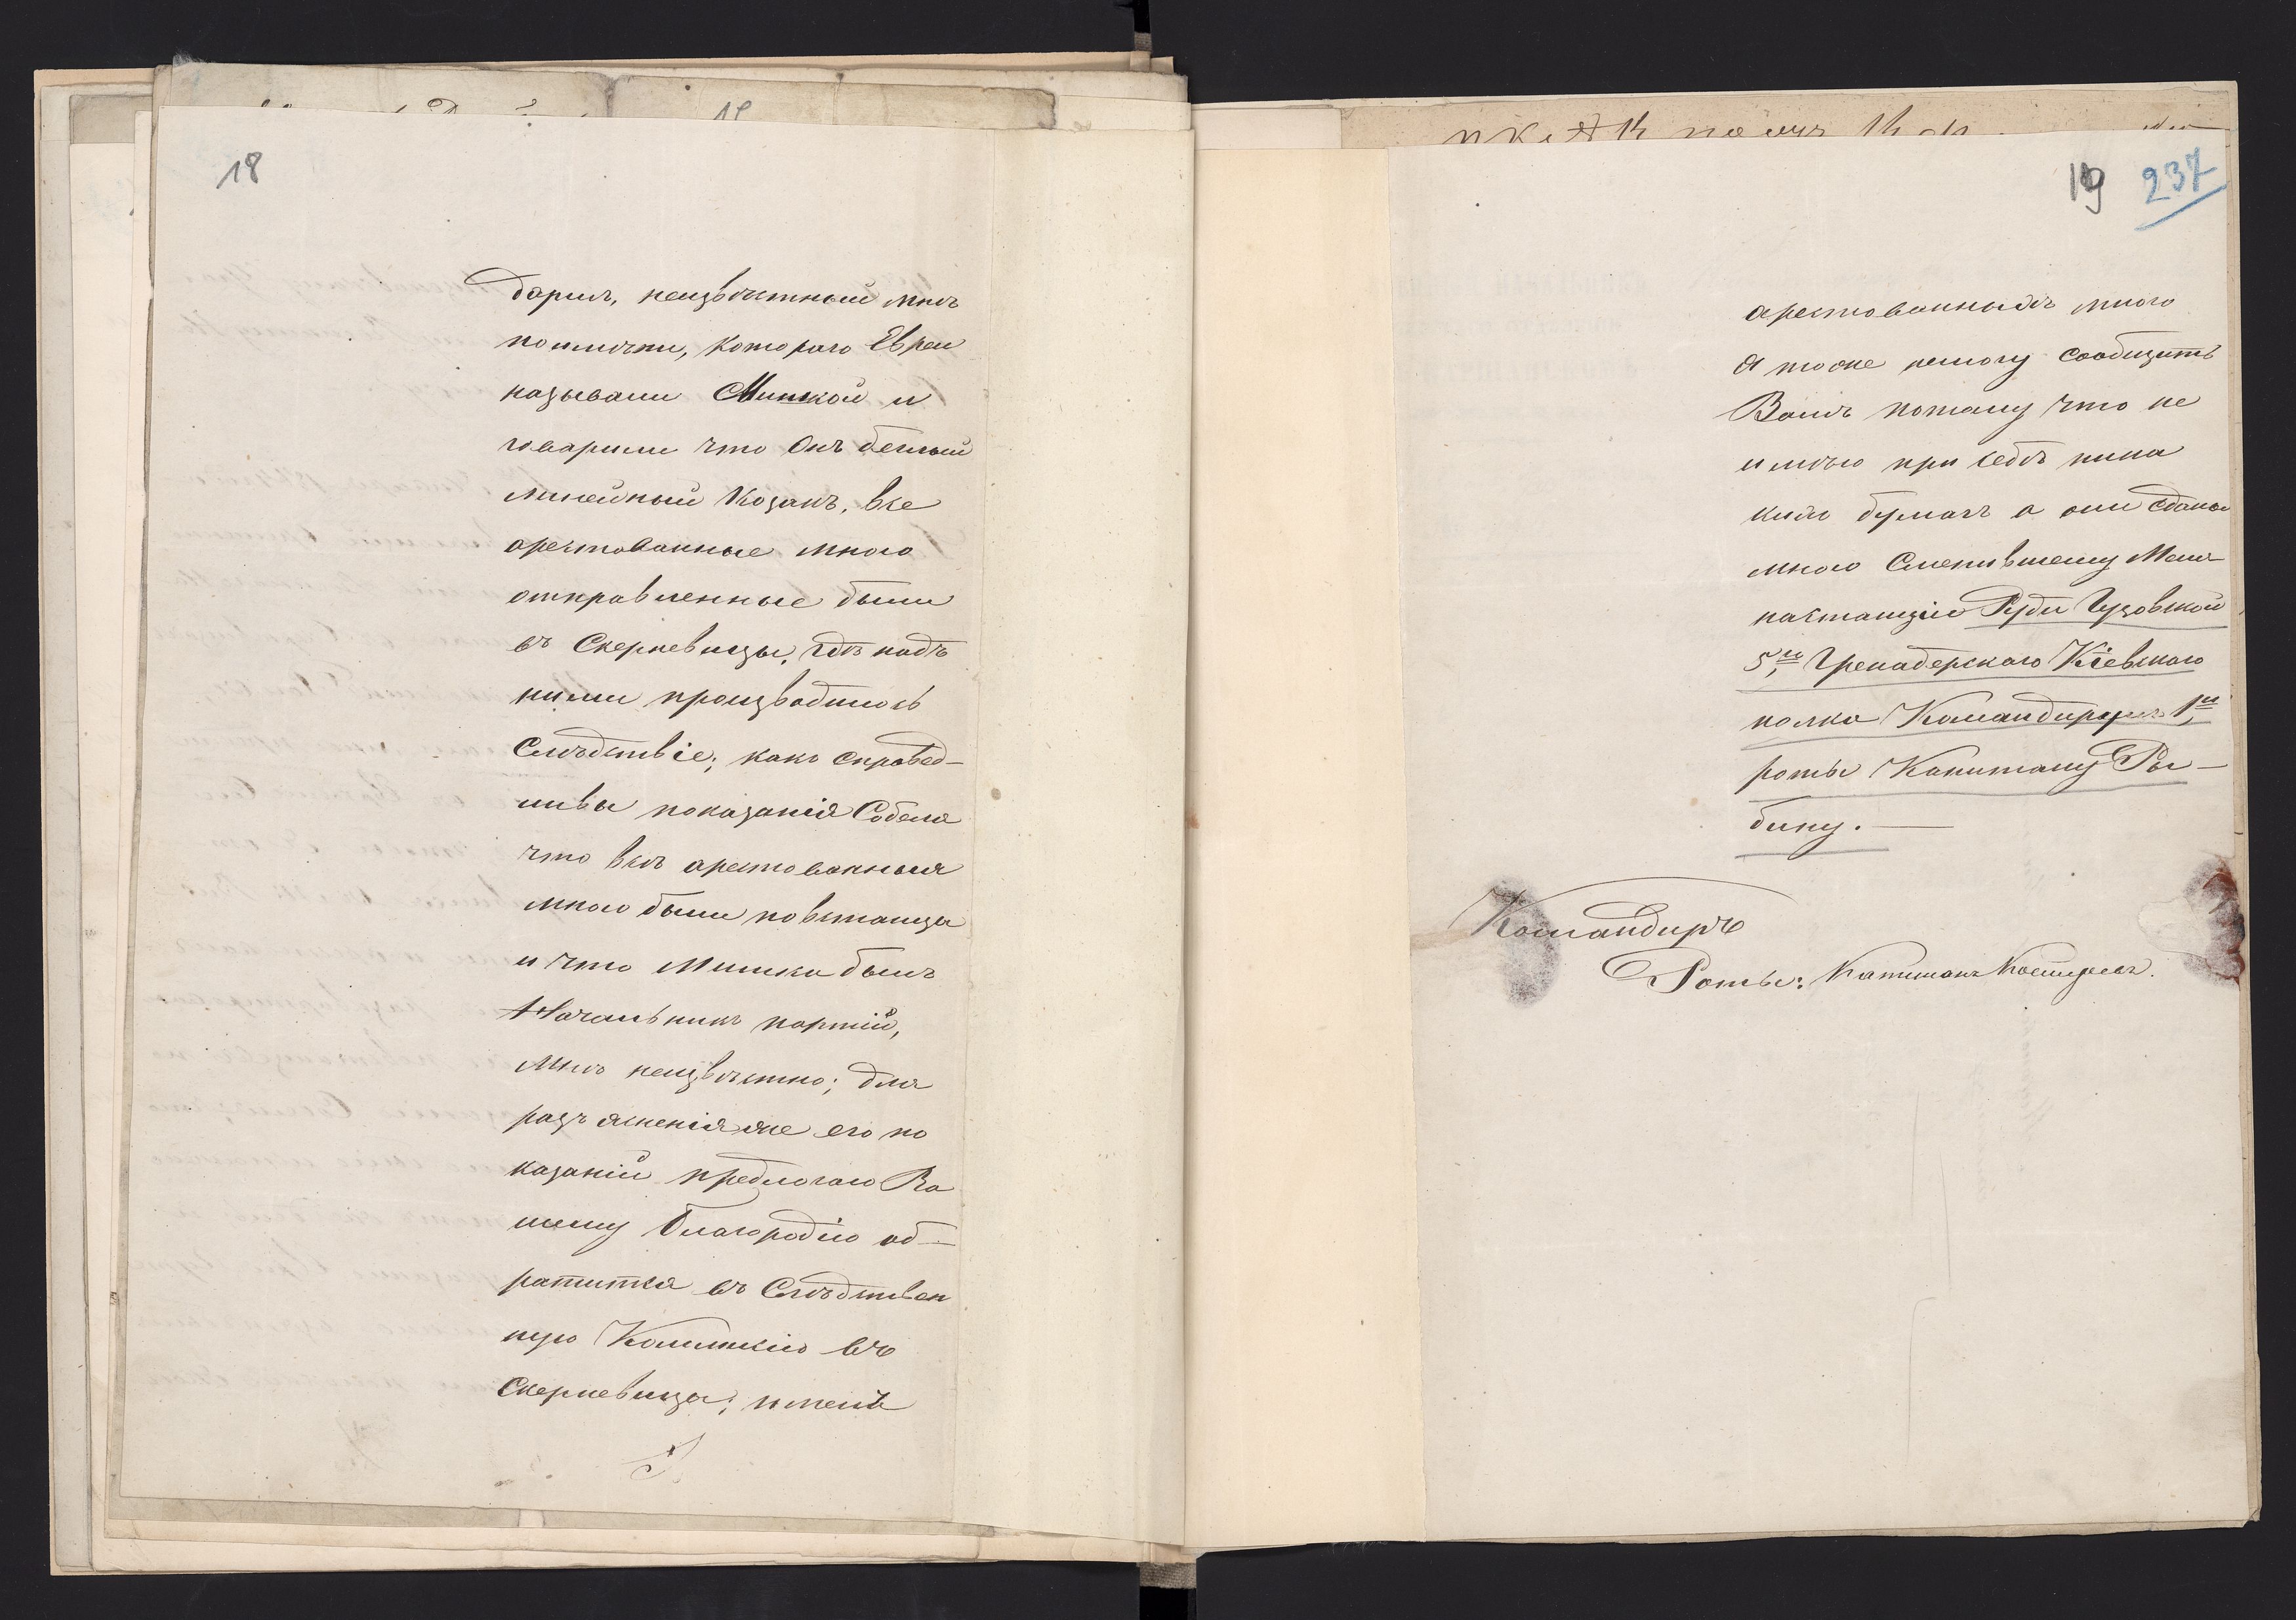 18
дарил, неизвѣстный мнѣ
по имѣни, котораго Евреи
называли Мишкой и
говарили что Онъ беглый
линейный Козакъ, все
арестованные мною
отправленные были
въ Скерневицы, гдѣ надъ
ними производилось
Слѣдствіе; какъ справед-
ливы показанія Собеля
что всѣ арестованныя
мною были повстанцы
и что Мишка былъ
Начальникъ партій,
мнѣ неизвѣстно; для
разъясненія же его по
казаній предлогаю Ва
шему благородію об-
ратится въ Слѣдствен
ную Коммисію въ
Скерневицы; имена
19 237
арестованныхъ мною
я тоже немогу сообщить
Вамъ потому что не
имѣю при себѣ ника
кихъ бумагъ а они сданы
мною Сменившему Меня
настанціи Руды Гузовской
5го Гренадерскаго Кіевскаго
полка Командиру 1й
роты Капитану Ры-
бину.
Командиръ
Роты: Капитанъ